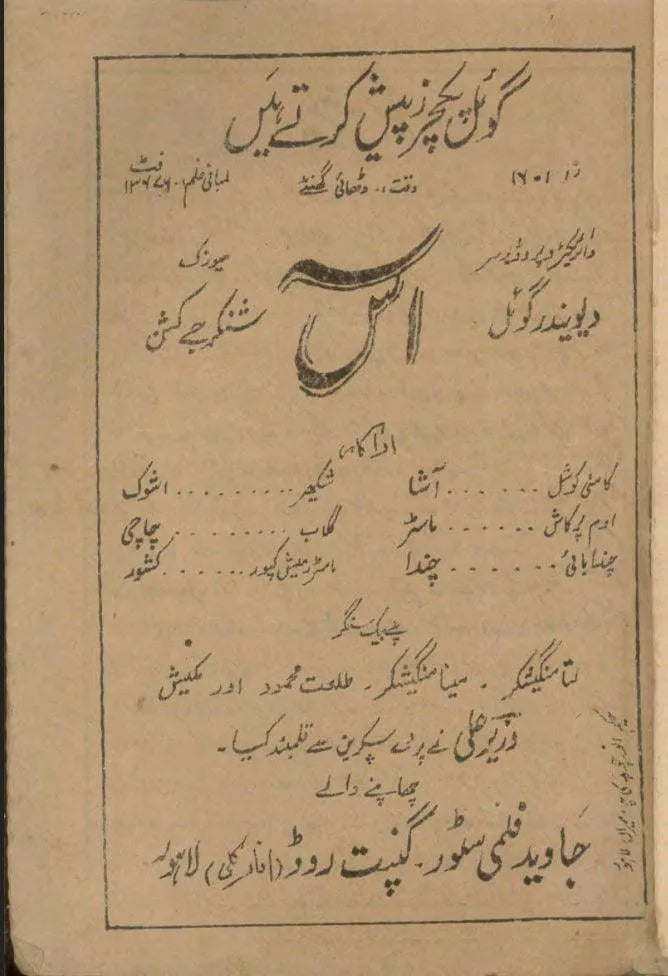 گوئل پکچرز پیش کرتے ہیں
وقت :۔ ڈھائی گھنٹے لمبائی فلم: ۱۳۶۷۶ فٹ
ڈائریکٹر و پروڈیوسر میوزک
دیویندر گوئل آس شنکر جے کشن
اداکار
کامنی کوشل ....... آشا شیکھر ......... اشوک
اوم پرکاش ....... ماسٹر گلاب ......... چاچی
چندا بائی ....... چندا ماسٹر رمیش کپور ...... کشور
پلے بیک سنگر
لتا منگیشکر ۔ مینا منگیشکر ۔ طلعت محمود اور مکیش
وزیر علی نے پردۂ سکرین سے قلمبند کیا ۔
چھاپنے والے
جاوید فلمی سٹور ۔ گنپت روڈ (انارکلی) لاہور